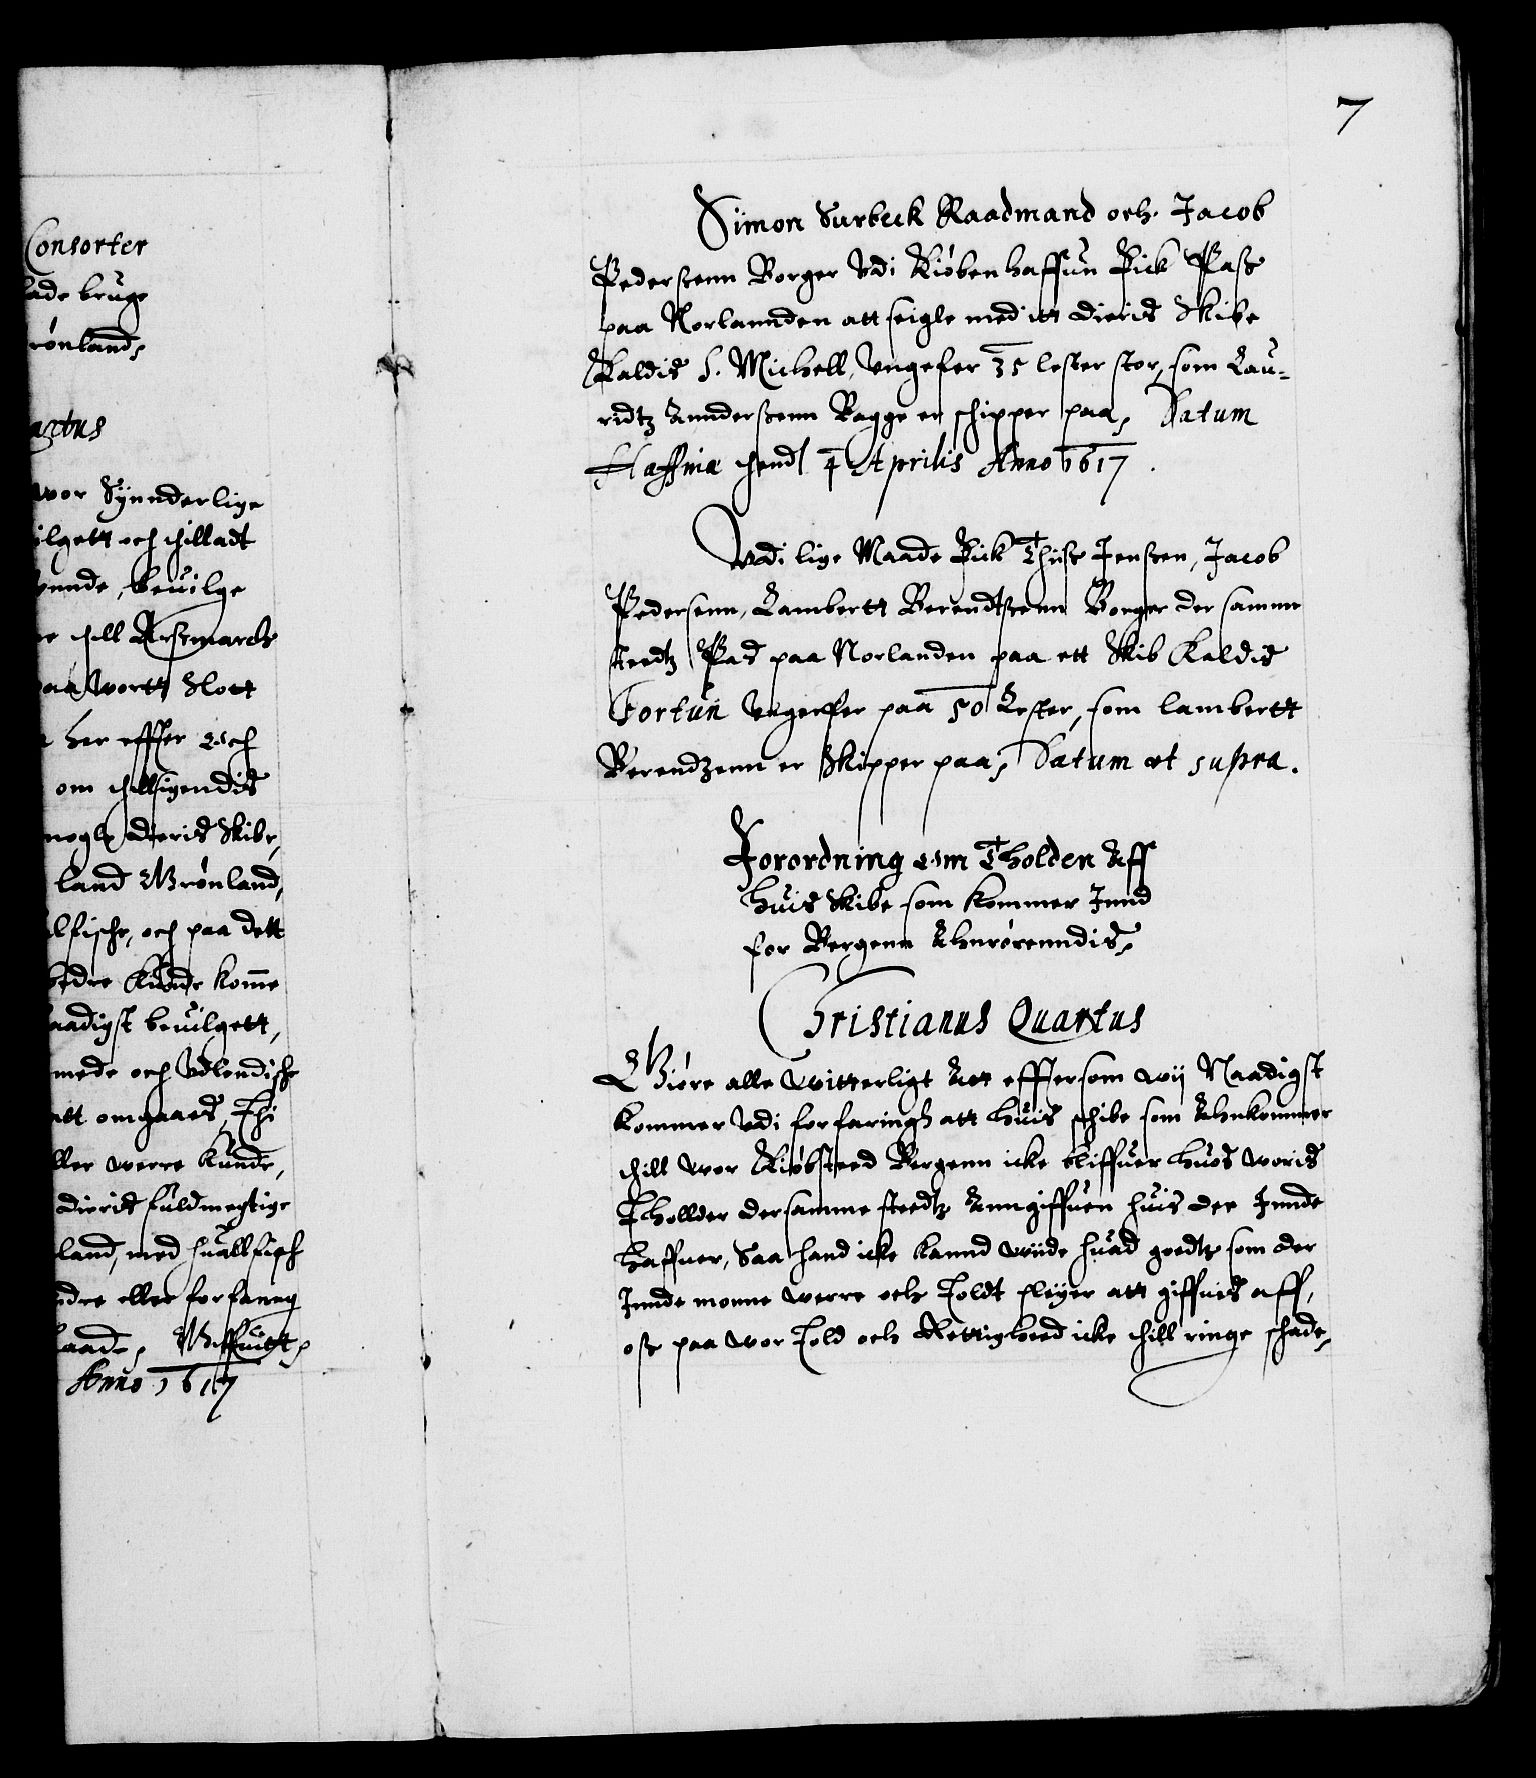 Consorter
lade bruge
rønland,
artus
wor Sÿnnderlige
ilgett och thilladt
unnde, beuilge
thill Restmarck
paa wortt Slott
her effter och
om thillsigendis
nogle dieris Skibe,
land Grønland,
alfische, och paa dett
bedre Kunde komme
aadigst beuilgett,
mede och Vdlendische
att omgaaes, Thi
ller werre Kunde,
dieris fuldmegtige
land, med huallfisch
ndre eller forfanng
laade, Giffuitt,
Anno 1617
7
Simon Surbeck Raadmand och Jacob
Pedersenn Borger Vdi Kiøbenhaffun Fick Pass
paa Norlannden att seigle med itt dieris Skibe
Kaldis S. Michell, Vngefer 35 lester stor, som Lau-
ridtz Annderssenn Bagge er schipper paa, Datum
Haffniæ thend 4 Aprilis Anno 1617.
Vdi lige Maade Fick Thise Jenssen, Jacob
Pedersenn, Lambertt Berendtssenn Borger der samme
stedtz Pas paa Norlanden paa ett Skib Kaldis
Fortun Vngeffer paa 50 Lester, som lambertt
Berendzenn er Skipper paa, Datum ut supra.
Forordning om Tholden Aff
huis Skibe som kommer Innd
for Bergenn Ahnrørenndis,
Christianus Quartus
Giøre alle witterligt Att effersom wij Naadigst
kommer Vdi forfaringh att huis schibe som Ahnkommer
thill wor Kiøbsteed Bergenn icke bliffuer huos woris
Thollder dersamme stedtz Anngiffuen huis der Innde
haffuer, Saa hand icke kannd wiide huad goedtz som der
Innde monne werre och Toldt pleÿer att giffuis aff,
oss paa wor Told och Rettigheed icke thill ringe schade,